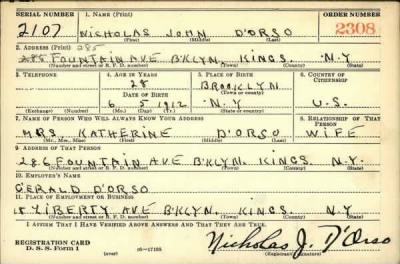 SERIAL NUMBER 1. NAME (Print) ORDER NUMBER
2107 NICHOLAS JOHN D'ORSO 2308
(First) (Middle) (Last)
2. ADDRESS (Print) 285
286 FOUNTAIN AVE B'KLYN. KINGS. N.Y
(Number and street or R. F. D. number) (Town) (County) (State)
3. TELEPHONE 4. AGE IN YEARS 5. PLACE OF BIRTH 6. COUNTRY OF CITIZENSHIP
28 BROOKLYN
DATE OF BIRTH (Town or county)
6 5 1912 N.Y U.S.
(Exchange) (Number) (Mo.) (Day) (Yr.) (State or country)
7. NAME OF PERSON WHO WILL ALWAYS KNOW YOUR ADDRESS 8. RELATIONSHIP OF THAT PERSON
MRS KATHERINE D'ORSO WIFE
(Mr., Mrs., Miss) (First) (Middle) (Last)
9. ADDRESS OF THAT PERSON
286 FOUNTAIN AVE B'KLYN. KINGS. N.Y.
(Number and street or R. F. D. number) (Town) (County) (State)
10. EMPLOYER'S NAME
GERALD D'ORSO
11. PLACE OF EMPLOYMENT OR BUSINESS
LIBERTY AVE B'KLYN. KINGS. N.Y
(Number and street or R. F. D. number) (Town) (County) (State)
I AFFIRM THAT I HAVE VERIFIED ABOVE ANSWERS AND THAT THEY ARE TRUE.
REGISTRATION CARD
D. S. S. Form 1 (over) 16—17105 Nicholas J. D'Orso
(Registrant's signature)